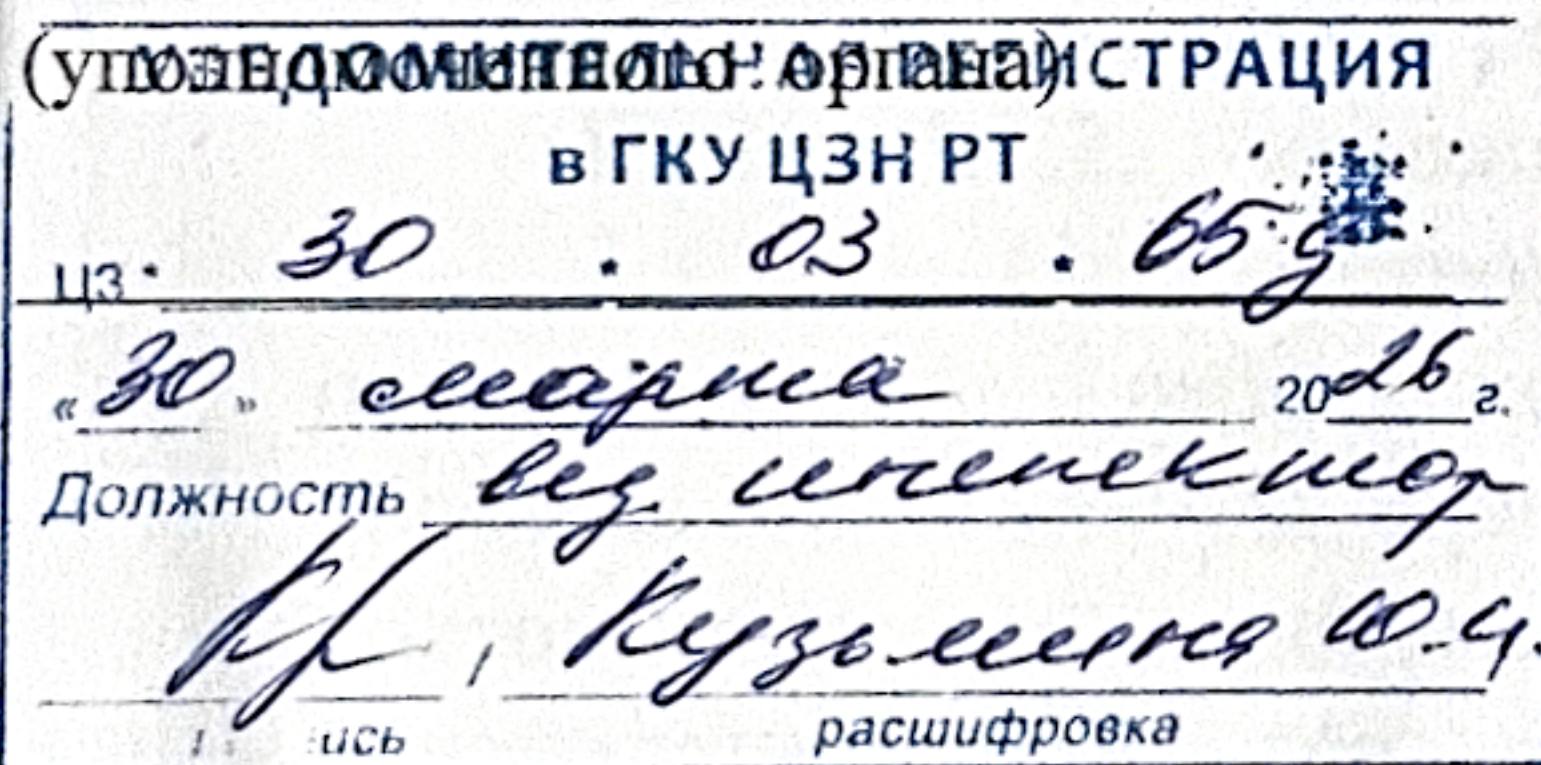 (уполномоченного органа)
УВЕДОМИТЕЛЬНАЯ РЕГИСТРАЦИЯ
в ГКУ ЦЗН РТ
ЦЗ · 30 . 03 . 65 д
«30» марта 2026 г.
Должность вед. инспектор
Кузьмина Ю.И.
расшифровка